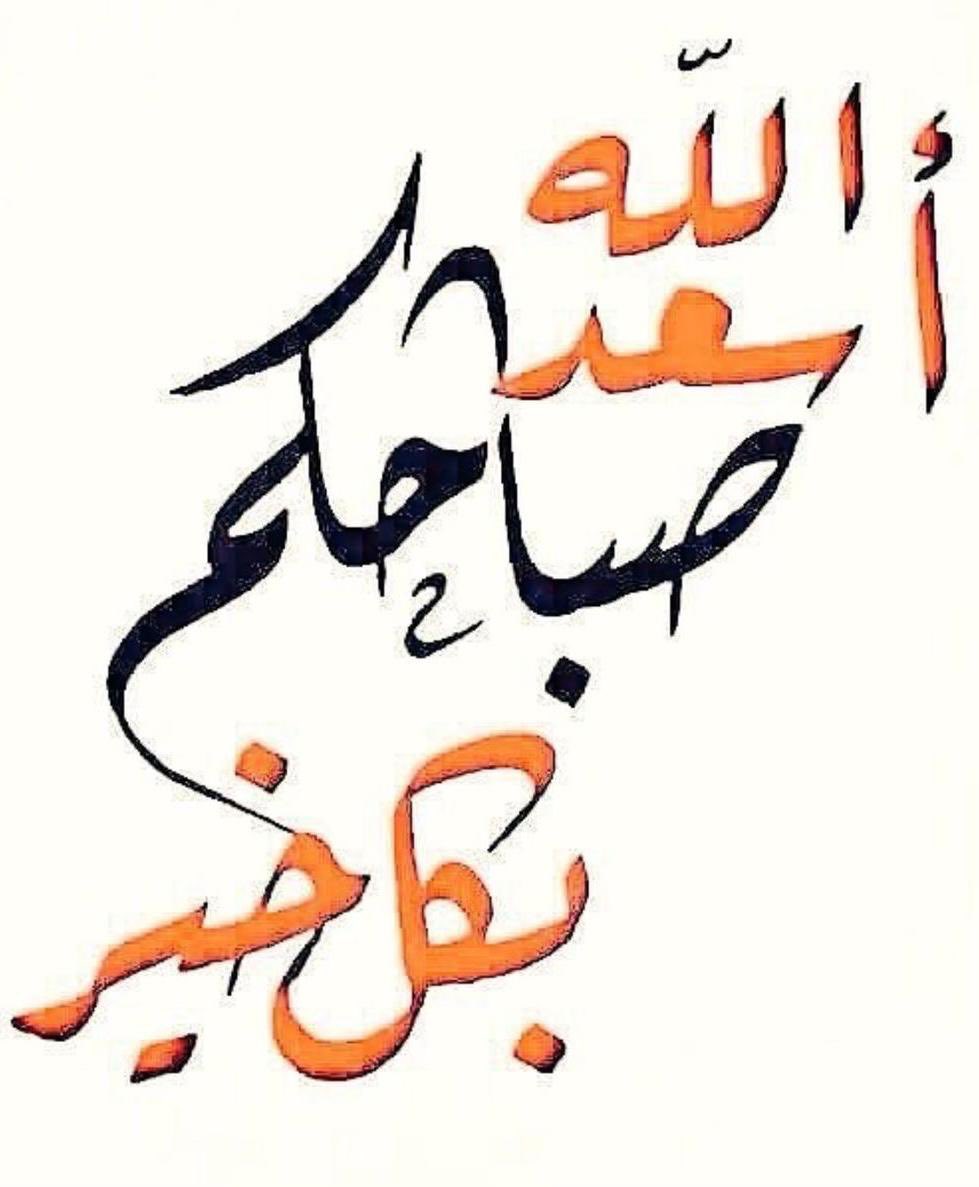 أسعد الله
صباحكم
بكل خير